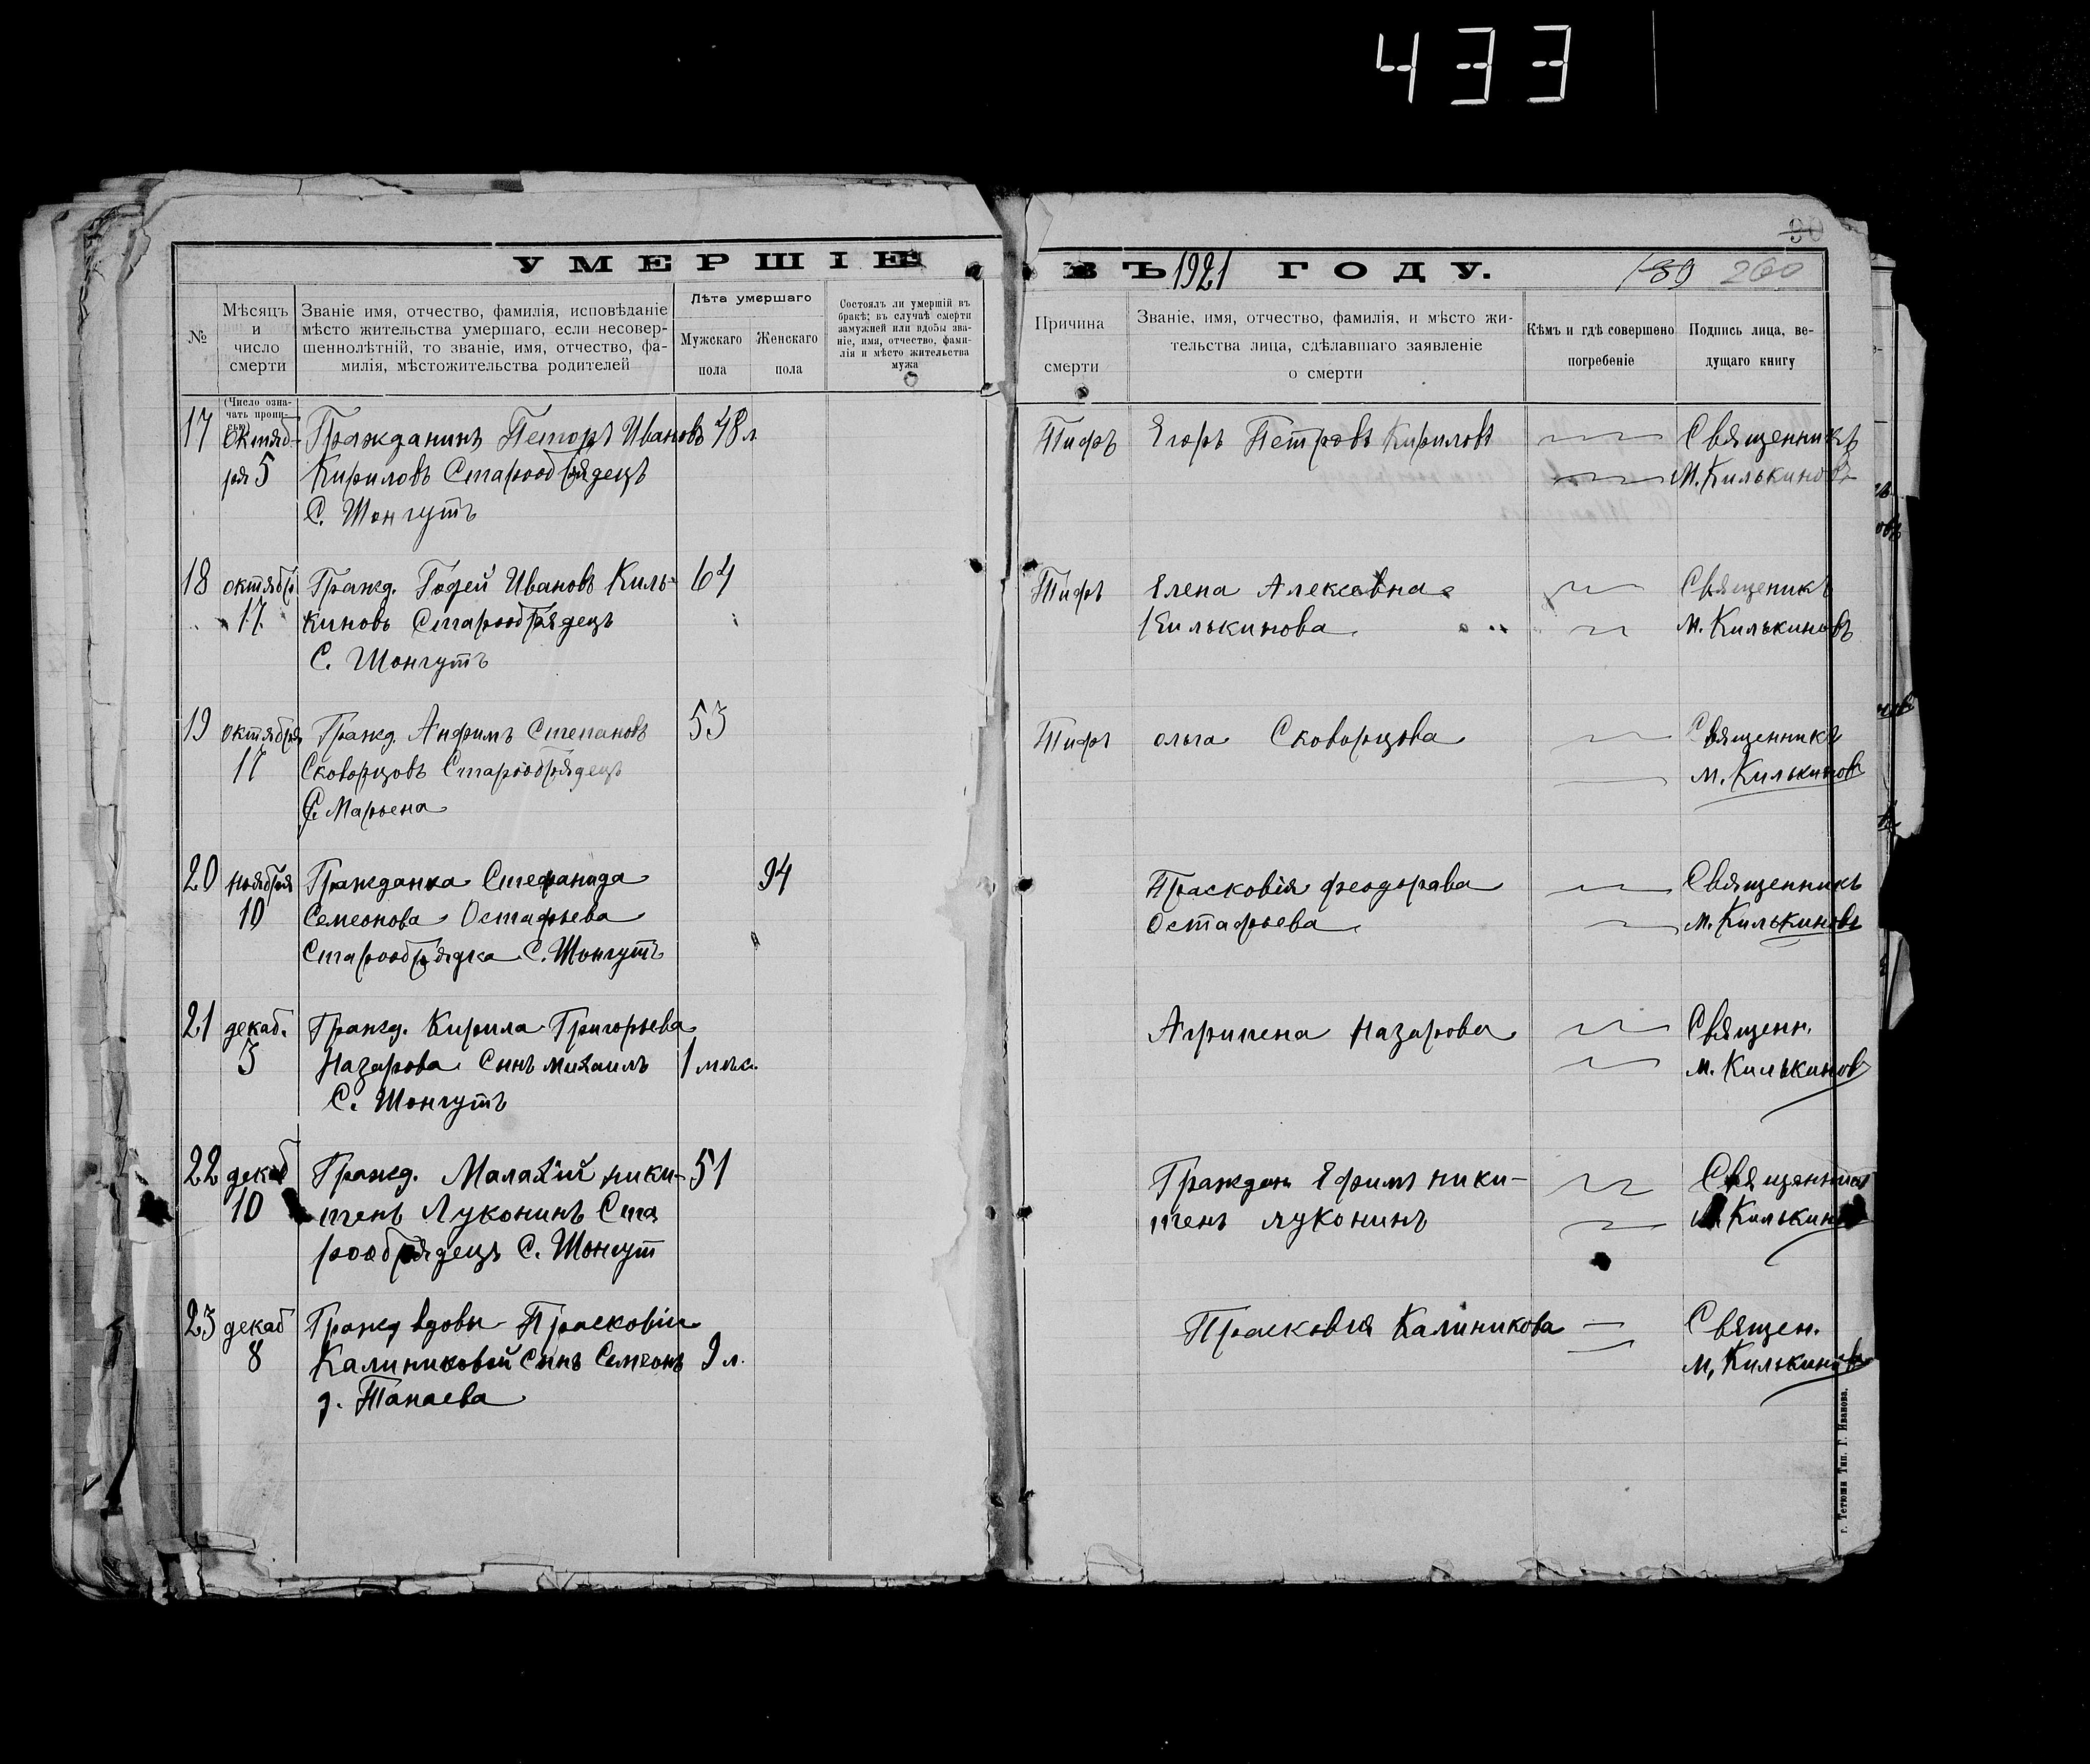 433
90
УМЕРШІЕ ВЪ 1921 ГОДУ.
189 260
№
Мѣсяцъ и число смерти
Званіе имя, отчество, фамилія, исповѣданіе
мѣсто жительства умершаго, если несовер-
шеннолѣтній, то званіе, имя, отчество, фа-
милія, мѣстожительства родителей
Лѣта умершаго
Мужскаго пола
Женскаго пола
Состоялъ ли умершій въ
бракѣ; въ случаѣ смерти
замужней или вдовы зва-
ніе, имя, отчество, фами-
лія и мѣсто жительства
мужа
Причина смерти
Званіе, имя, отчество, фамилія, и мѣсто жи-
тельства лица, сдѣлавшаго заявленіе
о смерти
Кѣмъ и гдѣ совершено
погребеніе
Подпись лица, ве-
дущаго книгу
(Число озна-
чать пропи-
сью)
17 Октяб- Гражданинъ Петоръ Ивановъ 48 л Тифъ Егоръ Петровъ Кириловъ Священникъ
ря 5 Кириловъ Старообрядецъ М. Килькиновъ
С. Шонгутъ
18 октября Гражд. Гофей Ивановъ Киль- 64 Тифъ Елена Алексевна Священикъ
17 киновъ Старообрядецъ Килькинова М. Килькиновъ
С. Шонгутъ
19 октября Гражд. Анфимъ Степановъ 53 Тифъ Ольга Скворцова Священникъ
17 Скворцовъ Старообрядецъ М. Килькиновъ
С. Марьена
20 ноября Гражданка Стефанида 94 Прасковія феодорава Священникъ
10 Семеонова Остафьева Остафьева М. Килькиновъ
Старообрядка С. Шонгутъ
21 декаб. Гражд. Кирила Григорьева Агрипена Назарова Священн.
5 Назарова Сынъ михаилъ 1 мѣс. М. Килькинов
С. Шонгутъ
22 декаб Гражд. Малахій ники- 51 Граждан Ефимъ ники- Священник
10 тенъ Луконинъ Ста тенъ луконинъ М. Килькинов
рообрядецъ С. Шонгут
23 декаб Гражд вдовы Прасковіи Прасковия Калиникова Священ.
8 Калиниковой Сынъ Семеонъ 9 л. М. Килькинов
д. Танаева
г. Тетюши Тип. Г. Иванова.